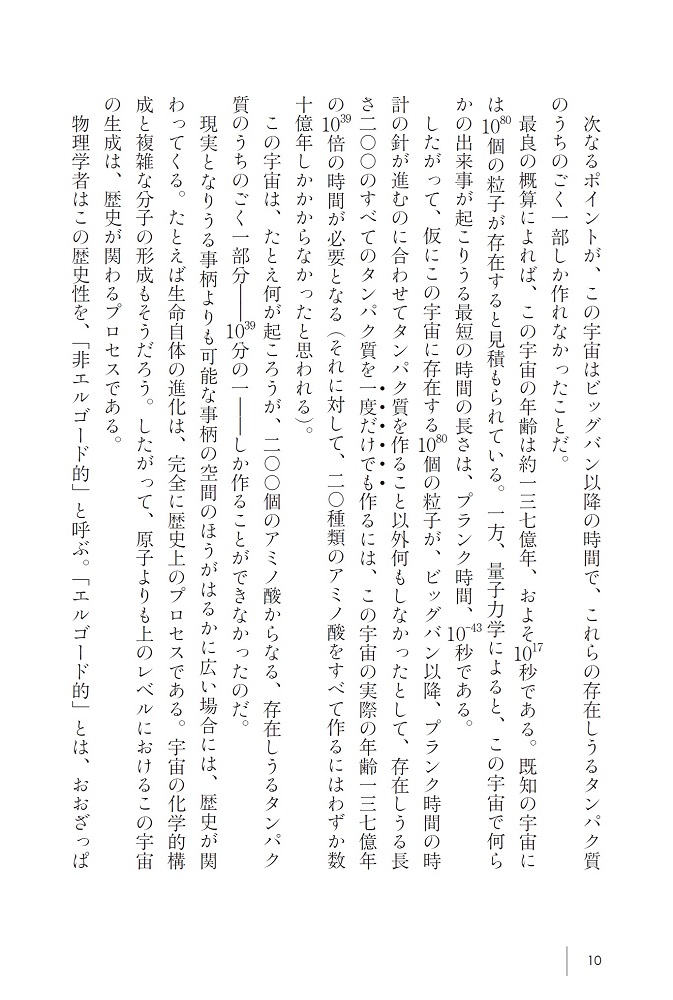 次なるポイントが、この宇宙はビッグバン以降の時間で、これらの存在しうるタンパク質
のうちのごく一部しか作れなかったことだ。
最良の概算によれば、この宇宙の年齢は約一三七億年、およそ10¹⁷秒である。既知の宇宙に
は10⁸⁰個の粒子が存在すると見積もられている。一方、量子力学によると、この宇宙で何ら
かの出来事が起こりうる最短の時間の長さは、プランク時間、10⁻⁴³秒である。
したがって、仮にこの宇宙に存在する10⁸⁰個の粒子が、ビッグバン以降、プランク時間の時
計の針が進むのに合わせてタンパク質を作ること以外何もしなかったとして、存在しうる長
さ二〇〇のすべてのタンパク質を一度だけでも作るには、この宇宙の実際の年齢一三七億年
の10³⁹倍の時間が必要となる（それに対して、二〇種類のアミノ酸をすべて作るにはわずか数
十億年しかかからなかったと思われる）。
この宇宙は、たとえ何が起ころうが、二〇〇個のアミノ酸からなる、存在しうるタンパク
質のうちのごく一部分――10³⁹分の一――しか作ることができなかったのだ。
現実となりうる事柄よりも可能な事柄の空間のほうがはるかに広い場合には、歴史が関
わってくる。たとえば生命自体の進化は、完全に歴史上のプロセスである。宇宙の化学的構
成と複雑な分子の形成もそうだろう。したがって、原子よりも上のレベルにおけるこの宇宙
の生成は、歴史が関わるプロセスである。
物理学者はこの歴史性を、「非エルゴード的」と呼ぶ。「エルゴード的」とは、おおざっぱ
10